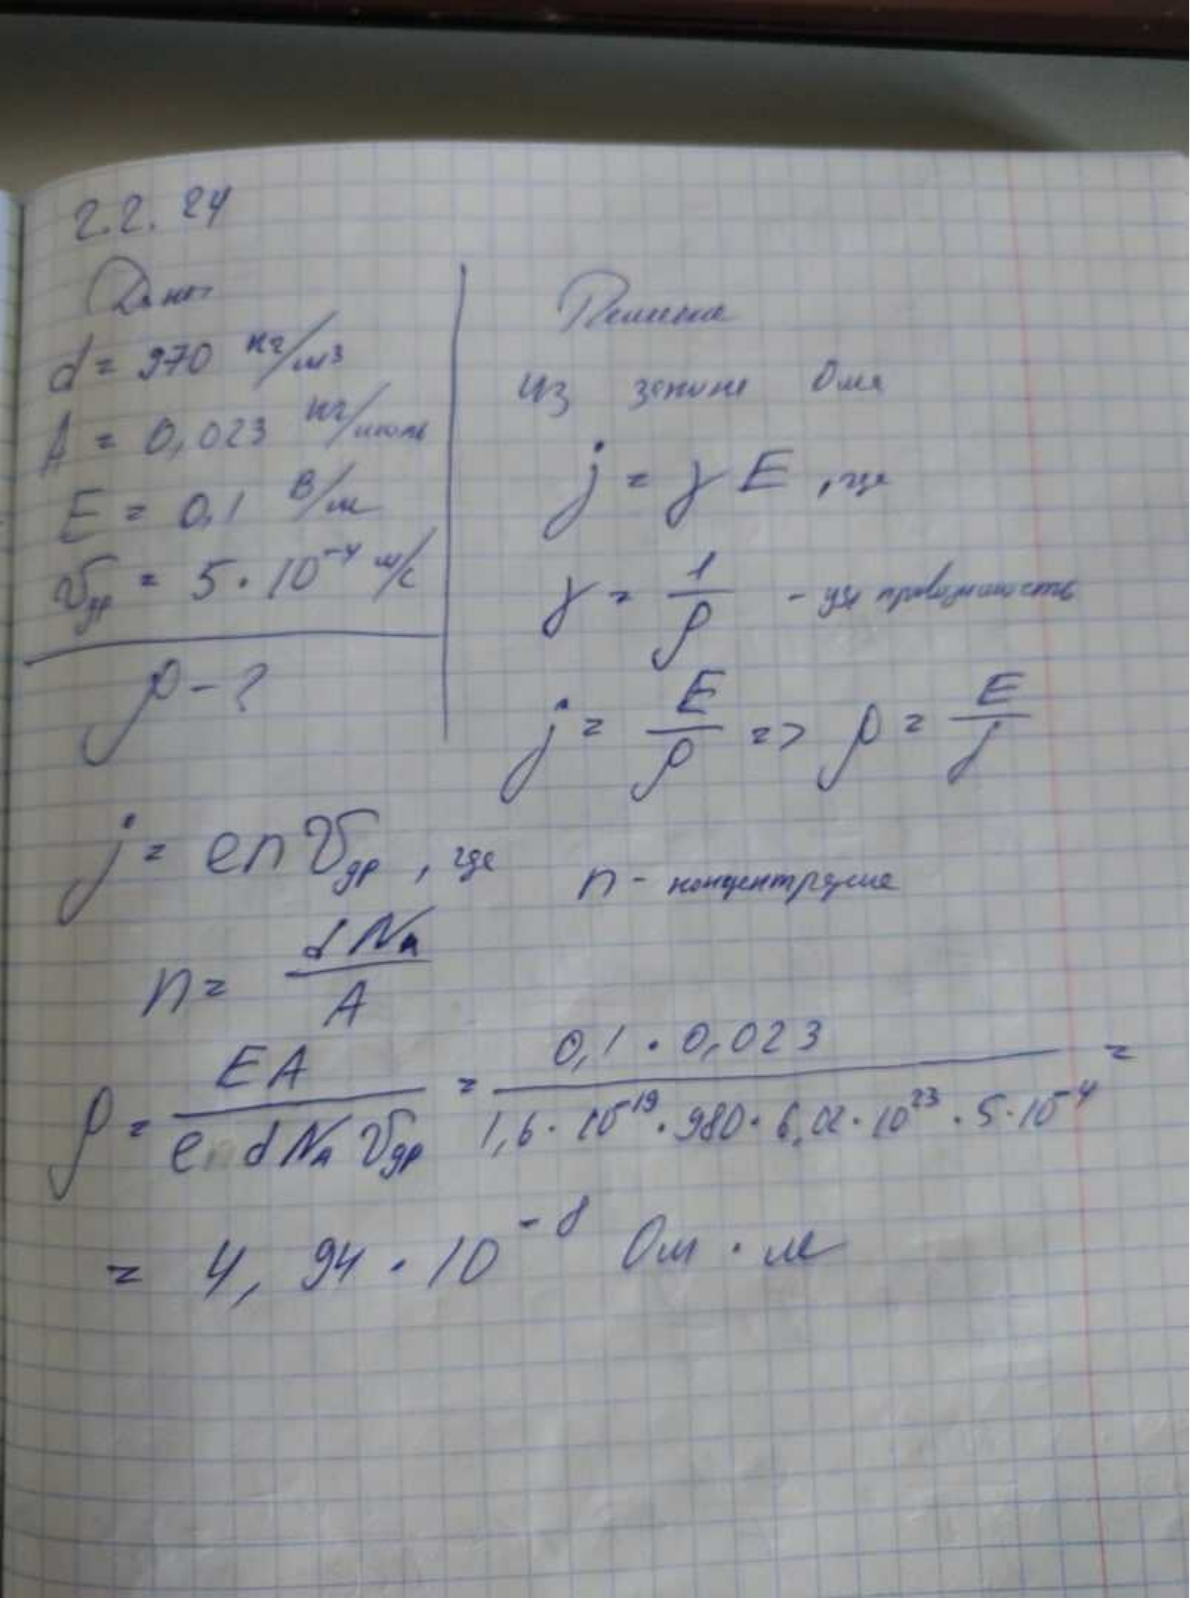 2.2.24
Дано
d = 970 кг/м³
A = 0,023 кг/моль
E = 0,1 В/м
υдр = 5·10⁻⁴ м/с
ρ - ?
Решение
Из закона Ома
j = γE, где
γ = 1/ρ - уд проводимость
j = E/ρ => ρ = E/j
j = enυдр, где n - концентрация
n = dNA/A
ρ = EA/(edNAυдр) = 0,1·0,023/(1,6·10⁻¹⁹·980·6,02·10²³·5·10⁻⁴) =
= 4,94·10⁻⁸ Ом·м